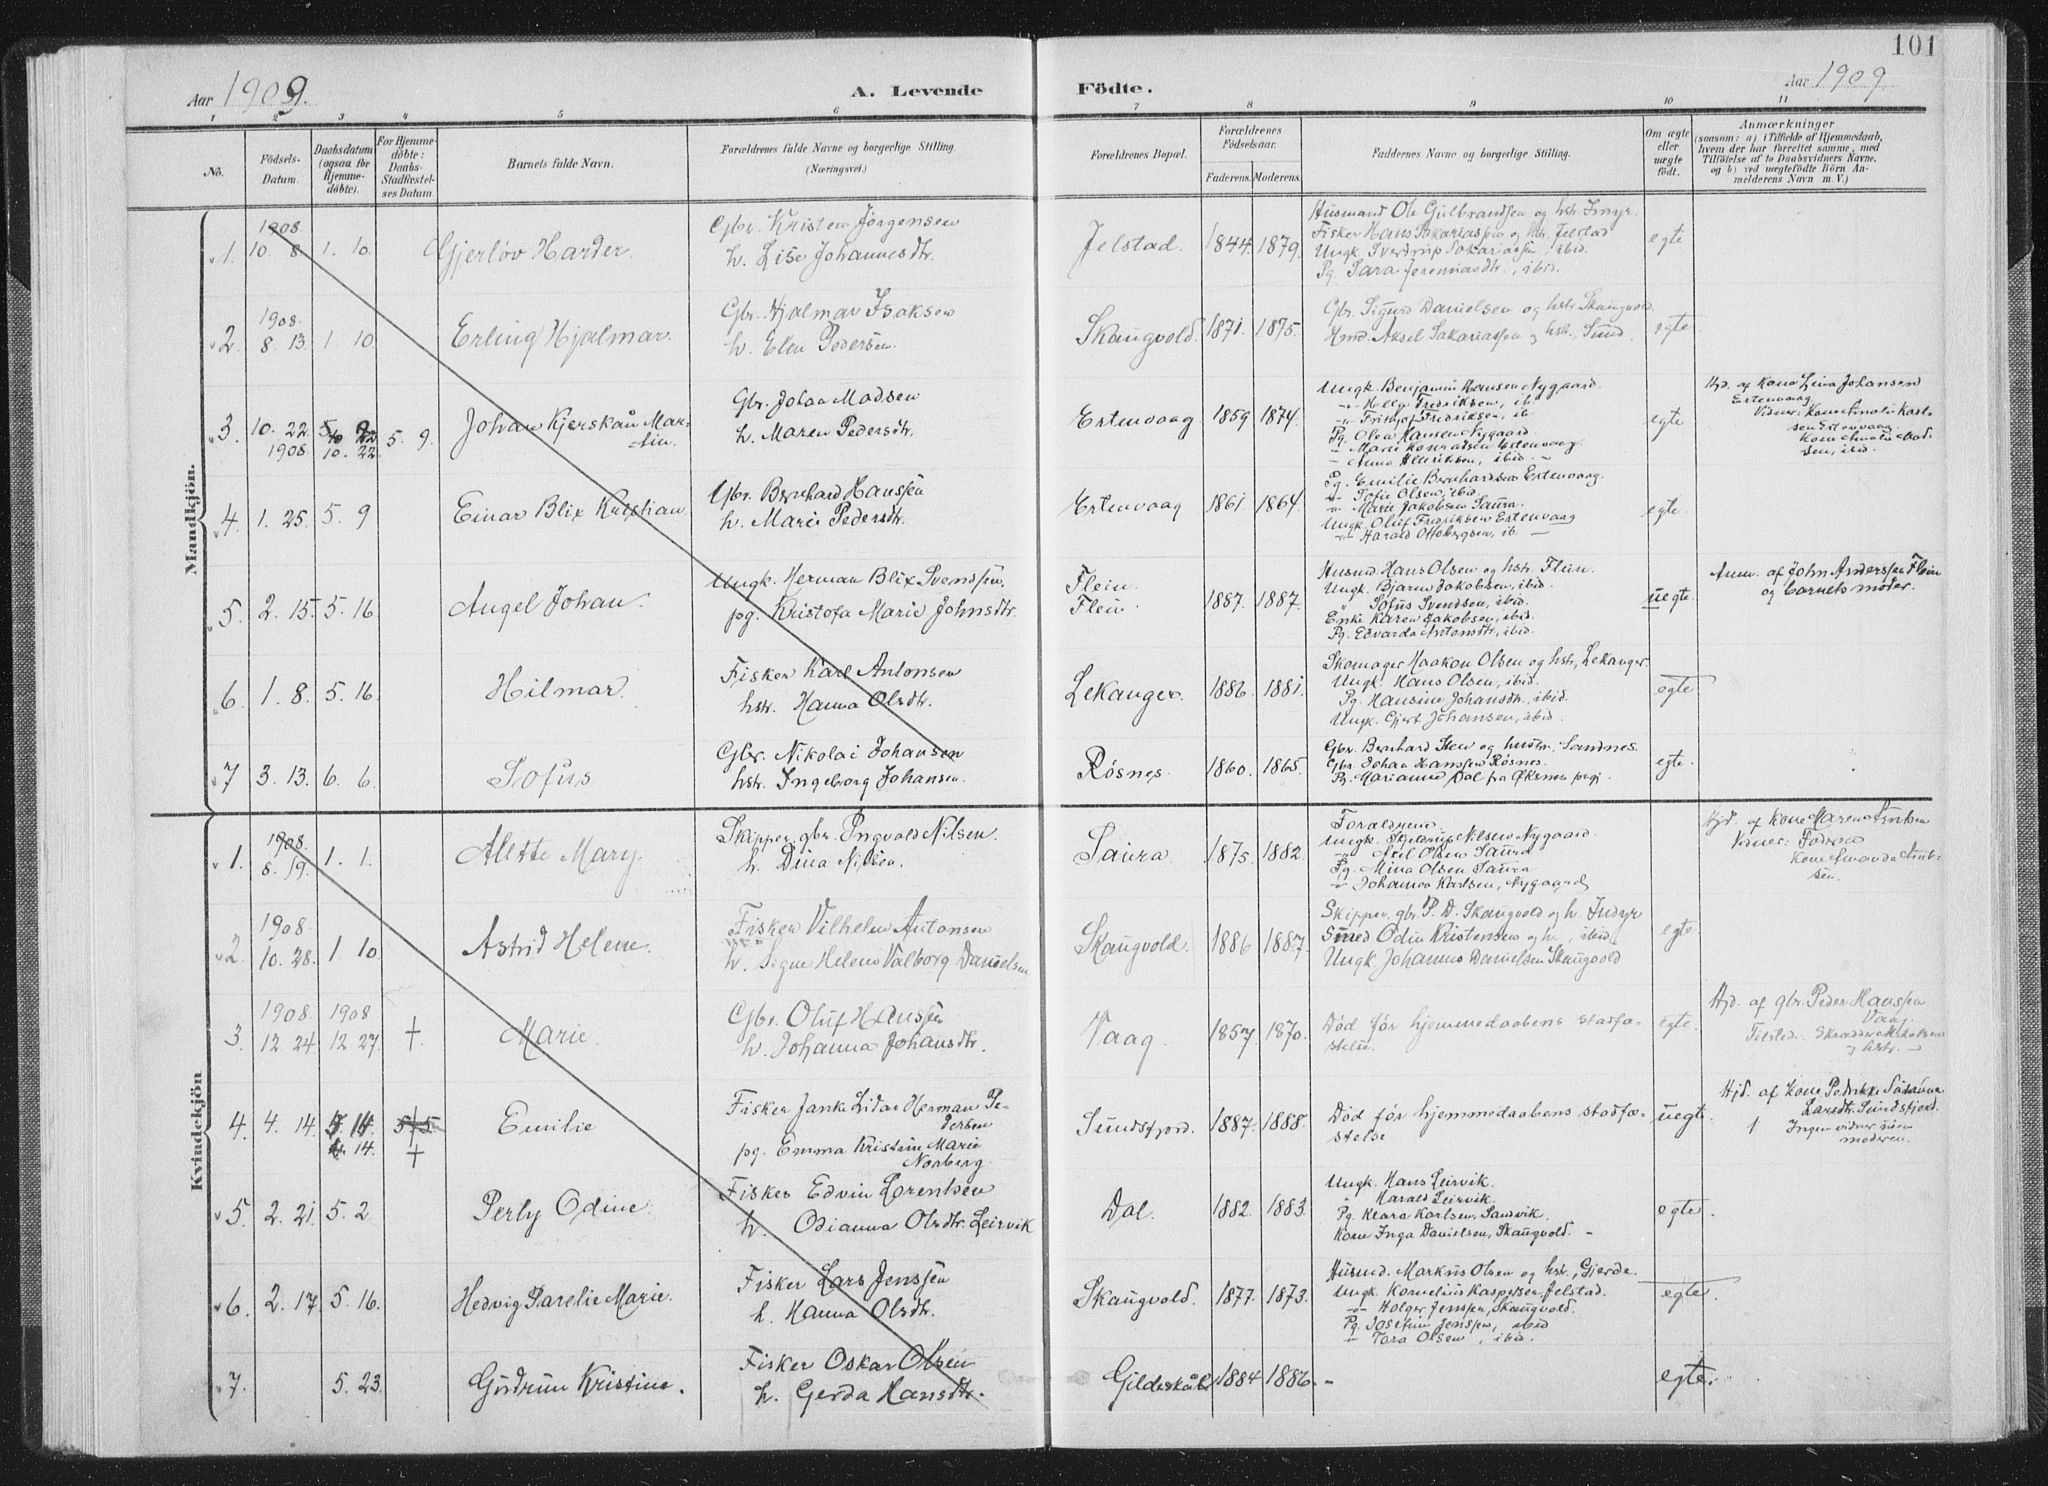 101
Aar 1909.
A. Levende
Födte.
Aar 1909
1 2 3 4 5 6 7 8 9 10 11
No.
Födsels-
Datum.
Daabsdatum
(ogsaa for
Hjemme-
döbte).
For Hjemme-
döbte:
Daabs-
Stadfæstel-
ses Datum.
Barnets fulde Navn.
Forældrenes fulde Navne og borgerlige Stilling.
(Næringsvei.)
Forældrenes Bopæl.
Forældrenes
Födselsaar.
Faderens. Moderens.
Faddernes Navne og borgerlige Stilling.
Om ægte
eller
uægte
født.
Anmærkninger
(saasom: a) i Tilfælde af Hjemmedaab,
hvem der har forrettet samme, med
Tilföielse af to Daabsvidners Navne,
og b) ved uægtefödte Börn An-
melderens Navn m. V.)
Mandkjön.
1908
1. 10 8. 1. 10. Gjerløv Harder.
Gbr. Kristen Jörgensen
h. Lise Johannesdtr.
Jelstad. 1844. 1879.
Husmand Ole Gulbrandsen og hstr. Inyr.
Fisker Hans Sakariassen og hstr. Jelstad
Ungk. Sverdrup Sakariassen, ibid.
Pg. Sara Jeremiasdtr., ibid.
egte
1908.
2. 8. 13. 1. 10 Erling Hjalmar.
Gbr. Hjalmar Isaksen
h. Elen Pedersen.
Skaugvold. 1871. 1875.
Gbr. Sigurd Danielsen og hstr. Skaugvold.
Hmd. Aksel Sakariassen og hstr., Sund.
egte
3. 10. 22. 5. 9. 5. 9.
1908 10. 22
Johan Kjerskau Mar-
tin.
Gbr. Johan Madsen
h. Maren Pedersdtr.
Ertenvaag 1859 1874.
Ungk. Benjamin Hansen Nygaard.
-"- Helge Fredriksen, ib.
-"- Frithjof Fredriksen, ib.
Pg. Olea Hansen Nygaard.
- Marie Konradsen Ertenvaag
- Anna Henriksen, ibid.
egte
Hjd. af Kone Lina Johansen
Ertenvaag
Vidner: Kone Amalie Karl-
sen Ertenvaag.
Kone Amalie Mad-
sen, ibid.
4. 1. 25. 5. 9 Einar Blix Kristian.
Gbr. Bernhard Hanssen
h. Marie Pedersdtr.
Ertenvaag 1861 1864.
Pg. Emilie Bernhardsen Ertenvaag.
-"- Sofie Olsen, ibid.
-"- Marie Jakobsen Saura.
Ungk. Oluf Fredriksen Ertenvaag
-"- Harald Ottobergsen, ib.
egte.
5. 2. 15. 5. 16 Angel Johan.
Ungk. Herman Blix Svendsen,
pg. Kristofa Marie Johnsdtr.
Flein.
Flein. 1887. 1887.
Husmd. Hans Olsen og hstr. Flein.
Ungk. Bjarne Jakobsen, ibid.
" Sofus Svendsen, ibid.
Enke Karen Jakobsen, ibid.
Pg. Edvarda Antonsdtr, ibid.
uegte.
Anm. af John Anderssen Flein
og barnets moder.
6. 1. 8. 5. 16. Hilmar.
Fisker Karl Antonsen
hstr. Hanna Olsdtr.
Lekanger. 1886. 1881.
Skomager Haakon Olsen og hstr., Lekanger.
Ungk. Hans Olsen, ibid.
Pg. Hansine Johansdtr., ibid.
Ungk. Gjert Johansen, ibid.
egte
7 3. 13. 6. 6. Sofus
Gbr. Nikolai Johansen
hstr. Ingeborg Johansen.
Rösnes. 1860. 1865.
Gbr. Bernhard Sten og hustr., Sandnes.
Gbr. Johan Hanssen Rösnes.
Pg. Marianne Dal fra Øksnes prgj.
egte.
Kvindekjön
1908.
1. 8. 19. 1. 1. Alette Mary.
Skipper, gbr. Ingvald Nilsen.
h. Dina Nilsen.
Saura. 1875. 1882.
Foraldrene.
Ungk. Skjelerup Nilsen Nygaard.
-"- Aril Olsen Saura
Pg. Mina Olsen Saura
-"- Johanna Karlsen, Nygaard
Hjd. af Kone Maren Arntsen
Vidner: Faderen
Kone Amanda Arnt-
sen.
1908.
2. 10. 28. 1 10. Astrid Helene.
Fisker Vilhelm Antonsen
h. Signe Helene Valborg Danielsen.
Skaugvold. 1886 1887.
Skipper, gbr. P. D. Skaugvold og h. Indyr
Smed Odin Kristensen og h., ibid.
Ungk Johannes Danielsen Skaugvold
egte.
1908. 1908
3. 12. 24 12 27. † Marie.
Gbr. Oluf Hanssen
h. Johanna Johansdtr.
Vaag. 1857 1870.
Död før hjemmedaabens stadfæ-
stelse.
egte.
Hjd. af gbr. Peder Hanssen
Vaag.
Tilsted.: Skrædder Mikalsen
og hstr.
4. 4. 14. 4. 14. † Emilie
Fisker Janke Lidar Herman Pe-
dersen
pg. Emma Kristine Marie
Norberg.
Sundsfjord. 1887. 1888.
Död før hjemmedaabens stadfæ-
stelse
uegte.
Hjd. af Kone Pedrikke Susanna
Larsdtr. Sundsfjord.
1 Ingen vidner uten
moderen.
5. 2. 21. 5. 2. Perly Odine.
Fisker Edvin Lorentsen
h. Odianna Olsdtr. Leirvik
Dal. 1882. 1883.
Ungk. Hans Leirvik.
" Harald Leirvik.
Pg. Klara Karlsen, Sandvik.
Kone Inga Danielsen, Skaugvold.
egte.
6. 2. 17. 5. 16. Hedvig Parelie Marie.
Fisker Lars Jenssen
h. Hanna Olsdtr.
Skaugvold. 1877. 1873.
Husmd. Markus Olsen og hstr., Gjerde.
Ungk. Kornelius Kaspersen, Jelstad.
-"- Holger Jenssen, Skaugvold.
Pg. Josefine Jenssen, ibid
-"- Tora Olsen, ibid.
egte.
7. 5. 23. Gudrun Kristine.
Fisker Oskar Olsen
h. Gerda Hansdtr.
Gildeskaal 1884 1886.
egte.